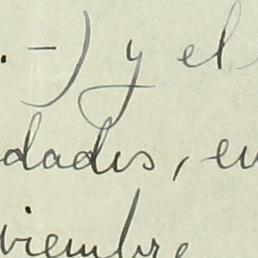 .-) y el
dades, en
viembre